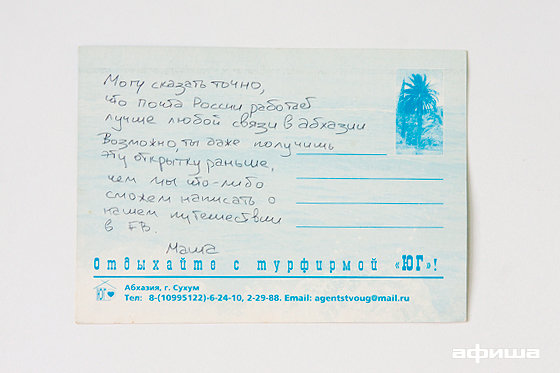 Могу сказать точно,
что Почта России работает
лучше любой связи в абхазии
Возможно, ты даже получишь
эту открытку раньше,
чем мы что-либо
сможем написать о
нашем путешествии
в FB.
Маша
Отдыхайте с турфирмой «ЮГ»!
ЮГ
Абхазия, г. Сухум
Тел: 8-(10995122)-6-24-10, 2-29-88. Email: agentstvoug@mail.ru
афиша